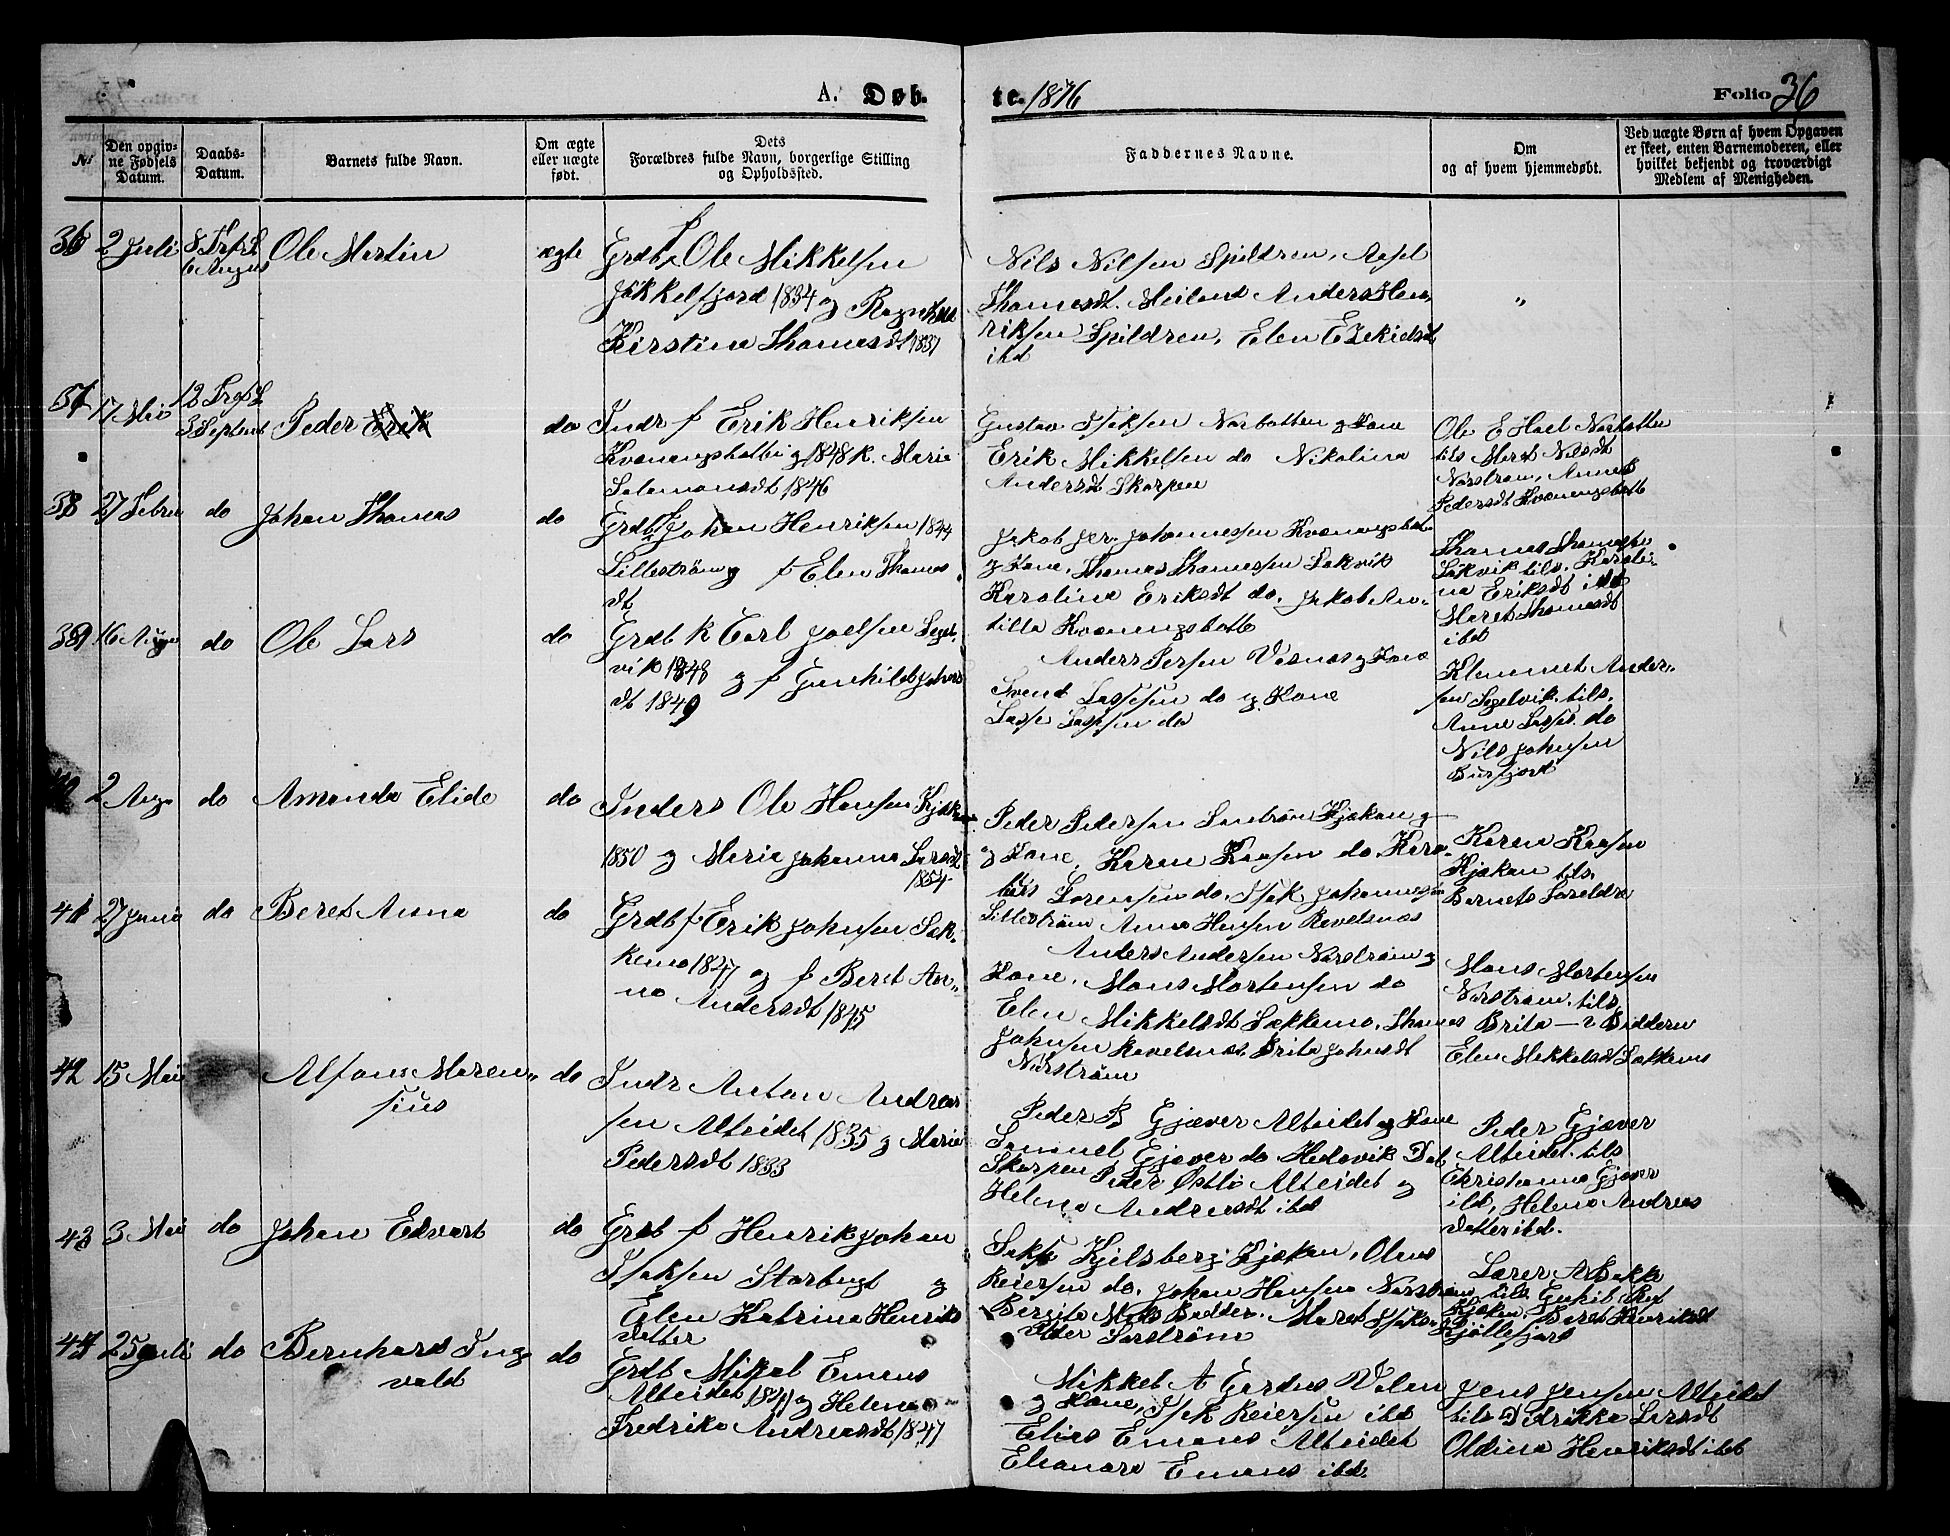 A. Døb.
te. 1876
Folio 36
№
Den opgiv-
ne Fødsels
Datum.
Daabs-
Datum.
Barnets fulde Navn.
Om ægte
eller uægte
født.
Dets
Forældres fulde Navn, borgerlige Stilling
og Opholdssted.
Faddernes Navne.
Om
og af hvem hjemmedøbt.
Ved uægte Børn af hvem Opgaven
er skeet, enten Barnemoderen, eller
hvilket bekjendt og troværdigt
Medlem af Menigheden.
36 2 Juli 8 Trfs
6 August
Ole Martin
ægte
Grdb f Ole Mikkelsen
Jökkelfjord 1834 og Ragnhild
Kirstine Thomasdt 1837
Nils Nilsen Spildren, Axel
Thomasdt. Meiland Anders Hen-
riksen Spildren, Elen Ezekielsdt
ibd
"
37 17 Mai 12 Trfs
3 Septembr
Peder Erik
do
Indr f Erik Henriksen
Kvænangsbotten 1848 k. Marie
Salamonsdt 1846
Gustav Isaksen Norbotten og Kone
Erik Mikkelsen do Nikoline
Andersdt Skorpen
Ole E Hoel Norbotten
tils Maret Nilsdt
Norstrøm, Anne
Pedersdt Kvænangsbotn
38 27 Febru do
Johan Thomas
do
Grdb f Johan Henriksen 1844
Lillestrøm og f Elen Thomas
dt
Jakob Johannessen Kvænangsbotn
og Kone, Thomas Thomassen Søkvik
Karoline Eriksdt do. Jakob An-
tilla Kvænangsbotn
Thomas Thomassen
Søkvik tils. Karoli-
ne Eriksdt ibd
Maret Thomasdt
ibd
39 16 Augu do
Ole Lars
do
Grdb k Carl Joelsen Seget-
vik 1848 og f Gunhild Johans
dt 1849
Anders Persen Vasnas og Kone
Svend Lassesen do og Kone
Lasse Lassesen do
Klemmet Ander-
sen Segelvik tils.
Anne Lasses. do
Nils Johnsen
Burfjord
40 2 Augu do
Amanda Elide
do
Inders Ole Hansen Kjækan
1850 og Marie Johanna Larsdt
1854
Peder Pedersen Sandtrøen Kjækan og
og Kone, Karen Kaasen do. Karo-
Lorensen do. Isak Johannesen
Lillestrøm Anne Hansen Revelsnæs
Karen Kaasen
Kjækan tils.
Barnets Foreldre
41 27 Juni do
Beret Anna
do
Grdb f Erik Johnsen Sæk-
kemo 1847 og f Beret An-
na Andersdt 1845
Anders Andersen Norstrøm og
Kone. Mons Mortensen do
Elen Mikkelsdt Sækkemo, Thomas
Johnsen Revelsnæs Brita Johnsdt
Norstrøm
Mons Mortensen
Norstrøm. tils
Brita — Bidderen
Elen Mikkelsdt Sækkemo
42 15 Mai
Alfons Maren-
sius
do
Indr Anton Andrea-
sen Alteidet 1835 og Maria
Pedersdt 1833
Peder B Gjæver Alteidet og Kone
Samuel Gjæver do Hedevik Dat
Skorpen Peder Østli Alteidet og
Helena Andreasdt ibd
Peder Gjæver
Alteidet. tils
Christianna Gjæver
ibd, Helena Andreas
datter ibd.
43 3 Mai do
Johan Edvart
do
Grdb f Henrik Johan
Isaksen Storbugt og
Elen Katrina Henriks
datter
Sakse Kjelsberg Kjækan, Olaus
Reiersen do, Johan Hansen Norstrøm
Bergite Mads Badder. Maret Isaks-
datter Sorstrøm
Lærer A Bakke
Kjækan, Beret Henriksdt
Kjøllefjord
44 25 Juli do
Bernhard Ing
vald
do
Grdb Mikal Emans
Alteidet 1841 og Helena
Fredrika Andreasdt 1847
Mikkel A Gerdus Valen
og Kone, Isak Reiersen ibd
Elias Emans Alteidet
Eleanora Emans ibd.
Jens Jensen Alteidet
tils Didrikke Larsdt
Oldina Henriksdt ibd